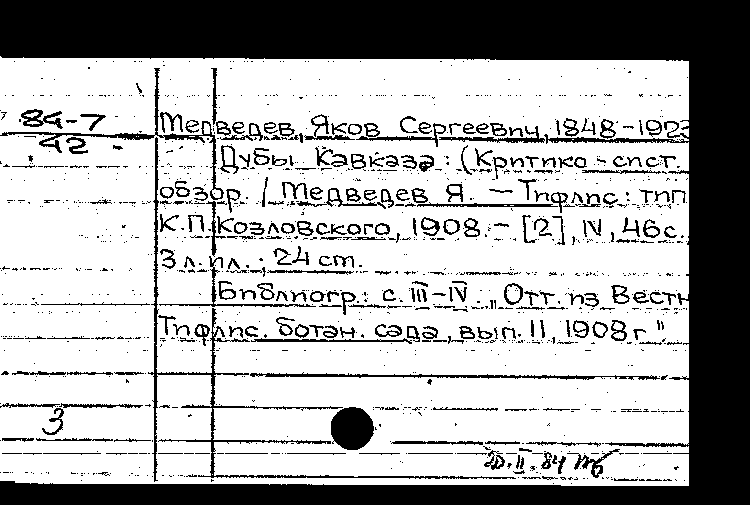 84-7
42
Медведев, Яков Сергеевич, 1848-1923
Дубы Кавказа : (Критико-сист.
обзор. / Медведев Я. — Тифлис : тип
К.П.Козловского, 1908.- [2], IV, 46с.,
3 л.ил. ; 24 cm.
Библиогр.: с. III-IV. „Отт. из Вестн
Тифлис. ботан. сада, вып. 11, 1908г"
3
II. 84